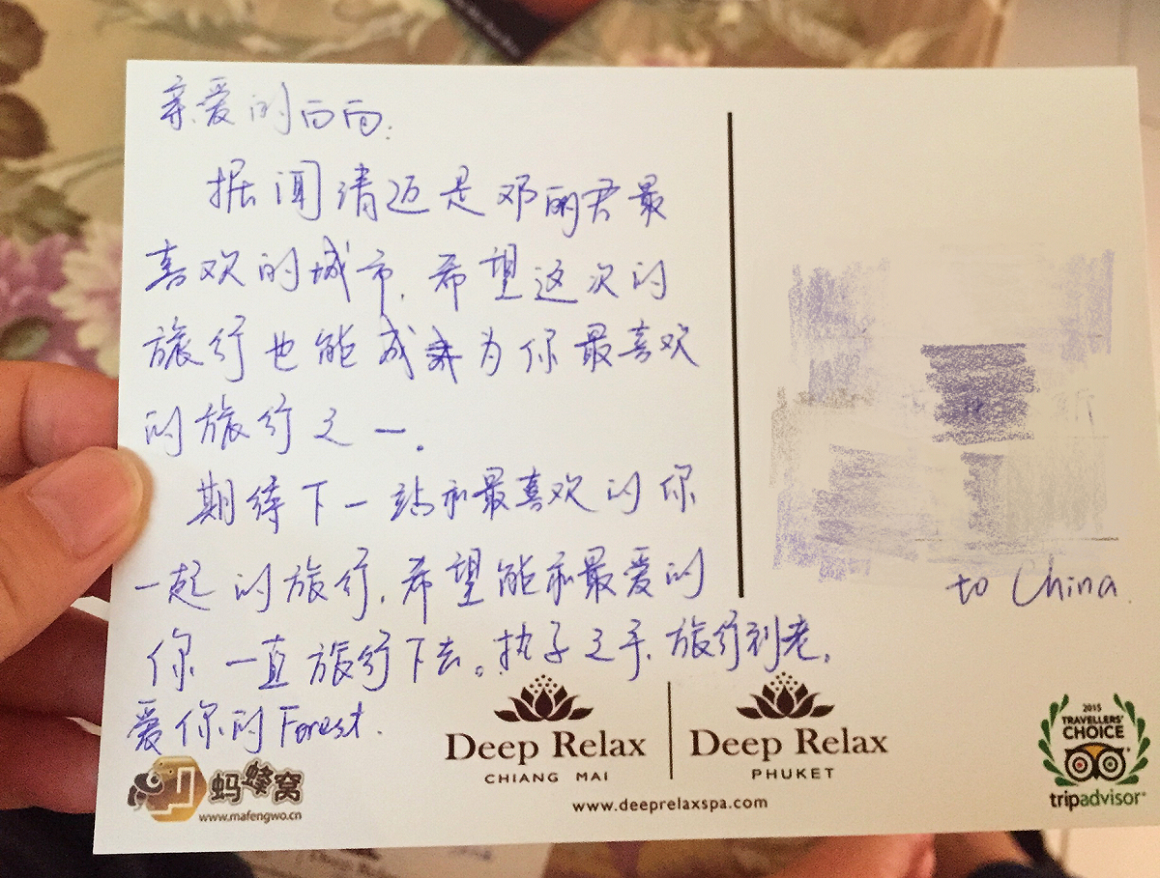 亲爱的向向:
据闻清迈是邓丽君最
喜欢的城市,希望这次的
旅行也能成为你最喜欢
的旅行之一。
期待下一站和最喜欢的你
一起的旅行,希望能和最爱的
你一直旅行下去。执子之手,旅行到老,
爱你的Forest.
to China.
Deep Relax
CHIANG MAI
Deep Relax
PHUKET
www.deeprelaxspa.com
蚂蜂窝
www.mafengwo.cn
2015
TRAVELLERS'
CHOICE
tripadvisor®